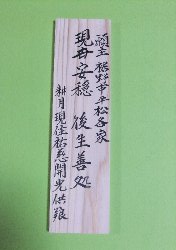 願主 裾野市平松各家
現世安穏 後生善処
耕月現住祐開光供養